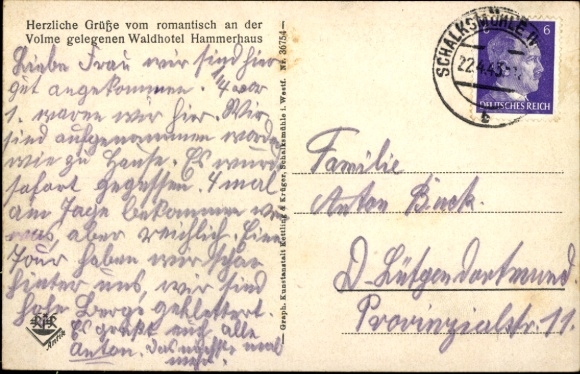 Herzliche Grüße vom romantisch an der
Volme gelegenen Waldhotel Hammerhaus
Liebe Frau wir sind hier
gut angekommen. 1/4 vor
1. waren wir hier. Wir
sind aufgenommen worden
wie zu Hause. Es wurde
sofort gegessen. 4 mal
am Tage bekommen wir
aber reichlich. Eine
Tour haben wir schon
hinter uns, wir sind
hohe Berge geklettert.
Es grüßt euch alle
Anton. das nächste mal
mehr.
Graph. Kunstanstalt Kettling & Krüger, Schalksmühle i. Westf. Nr. 36754
SCHALKSMÜHLE
22.4.43
c
6
DEUTSCHES REICH
Familie
Anton Buck.
D. Lütgendortmund.
Provinzialstr. 11.